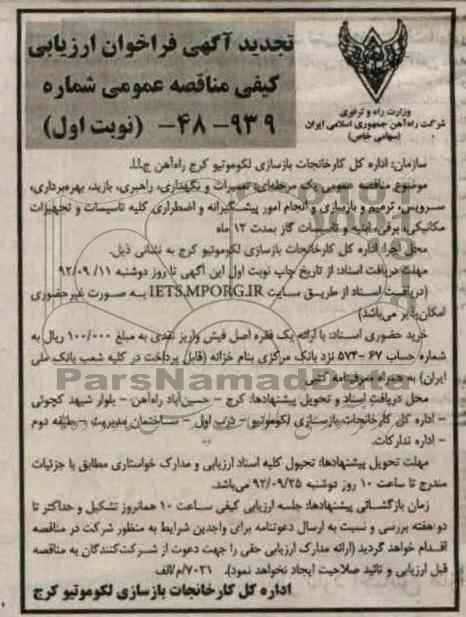 تجدید آگهی فراخوان ارزیابی
کیفی مناقصه عمومی شماره
۹۳۹-۴۸- (نوبت اول)
وزارت راه و ترابری
شرکت راه‌آهن جمهوری اسلامی ایران
(سهامی خاص)
سازمان: اداره کل کارخانجات بازسازی لکوموتیو کرج راه‌آهن ج.ا.ا.
موضوع مناقصه عمومی یک مرحله‌ای: تعمیرات و نگهداری، راهبری، بازدید، بهره‌برداری،
سرویس، ترمیم و بازسازی و انجام امور پیشگیرانه و اضطراری کلیه تاسیسات و تجهیزات
مکانیکی، برقی، ابنیه و تاسیسات گاز بمدت ۱۲ ماه
محل اجرا: اداره کل کارخانجات بازسازی لکوموتیو کرج به نشانی ذیل.
مهلت دریافت اسناد: از تاریخ چاپ نوبت اول این آگهی تا روز دوشنبه ۹۲/۰۹/۱۱
(دریافت اسناد از طریق سایت IETS.MPORG.IR به صورت غیرحضوری
امکان‌پذیر می‌باشد)
خرید حضوری اسناد: با ارائه یک فقره اصل فیش واریز نقدی به مبلغ ۱۰۰/۰۰۰ ریال به
شماره حساب ۶۷-۵۷۴ نزد بانک مرکزی بنام خزانه (قابل پرداخت در کلیه شعب بانک ملی
ایران) به همراه معرفی‌نامه کتبی
محل دریافت اسناد و تحویل پیشنهادها: کرج - حسین‌آباد راه‌آهن - بلوار شهید کچوئی
- اداره کل کارخانجات بازسازی لکوموتیو - درب اول - ساختمان مدیریت - طبقه دوم
- اداره تدارکات.
مهلت تحویل پیشنهادها: تحویل کلیه اسناد ارزیابی و مدارک خواستاری مطابق با جزئیات
مندرج تا ساعت ۱۰ روز دوشنبه ۹۲/۰۹/۲۵ می‌باشد.
زمان بازگشائی پیشنهادها: جلسه ارزیابی کیفی ساعت ۱۰ همانروز تشکیل و حداکثر تا
دو هفته بررسی و نسبت به ارسال دعوتنامه برای واجدین شرایط به منظور شرکت در مناقصه
اقدام خواهد گردید (ارائه مدارک ارزیابی حقی را جهت دعوت از شرکت‌کنندگان به مناقصه
قبل ارزیابی و تائید صلاحیت ایجاد نخواهد نمود). ۷۰۲۱/م/الف
اداره کل کارخانجات بازسازی لکوموتیو کرج
ParsNamadData